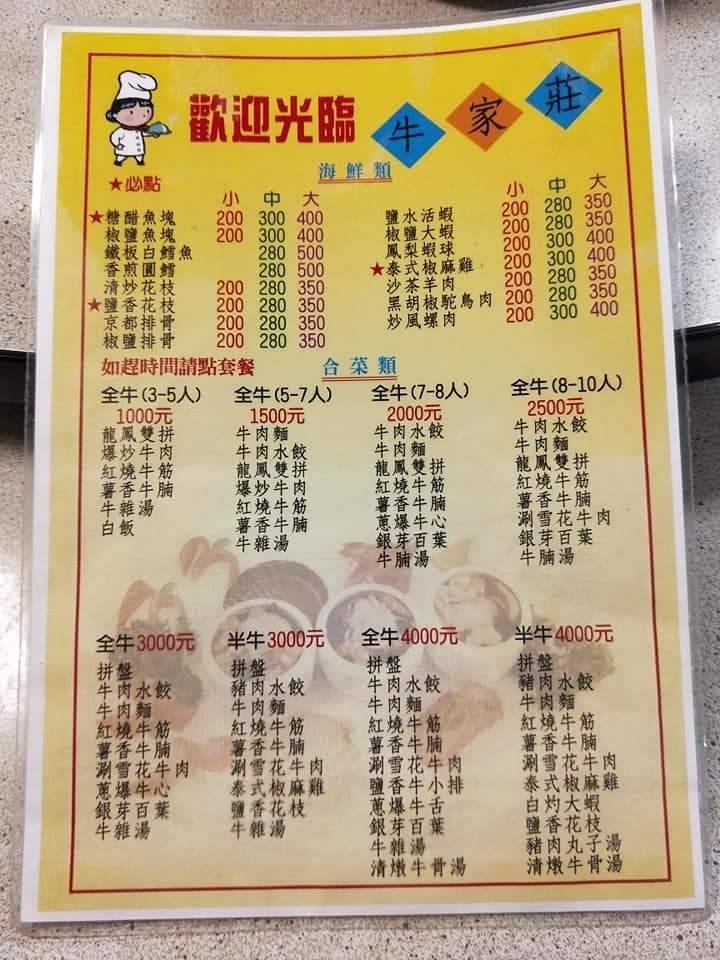 歡迎光臨 牛家莊
海鮮類
★必點
小 中 大
★糖醋魚塊 200 300 400
椒鹽魚塊 200 300 400
鐵板白鱈魚 280 500
香煎圓鱈 280 500
清炒花枝 200 280 350
★鹽香花枝 200 280 350
京都排骨 200 280 350
椒鹽排骨 200 280 350
小 中 大
鹽水活蝦 200 280 350
椒鹽大蝦 200 280 350
鳳梨蝦球 200 300 400
★泰式椒麻雞 200 300 400
沙茶羊肉 200 280 350
黑胡椒駝鳥肉 200 280 350
炒風螺肉 200 300 400
如趕時間請點套餐
合菜類
全牛(3-5人)
1000元
龍鳳雙拼
爆炒牛肉
紅燒牛筋
薯香牛腩
牛雜湯
白飯
全牛(5-7人)
1500元
牛肉麵
牛肉水餃
龍鳳雙拼
爆炒牛肉
紅燒牛筋
薯香牛腩
牛雜湯
全牛(7-8人)
2000元
牛肉水餃
牛肉麵
龍鳳雙拼
紅燒牛筋
薯香牛腩
蔥爆牛心
銀芽百葉
牛腩湯
全牛(8-10人)
2500元
牛肉水餃
牛肉麵
龍鳳雙拼
紅燒牛筋
薯香牛腩
涮雪花牛肉
銀芽百葉
牛腩湯
全牛3000元
拼盤
牛肉水餃
牛肉麵
紅燒牛筋
薯香牛腩
涮雪花牛肉
蔥爆牛心
銀芽百葉
牛雜湯
半牛3000元
拼盤
豬肉水餃
牛肉麵
紅燒牛筋
薯香牛腩
涮雪花牛肉
泰式椒麻雞
鹽香花枝
牛雜湯
全牛4000元
拼盤
牛肉水餃
牛肉麵
紅燒牛筋
薯香牛腩
涮雪花牛肉
鹽香牛小排
蔥爆牛舌
銀芽百葉
牛雜湯
清燉牛骨湯
半牛4000元
拼盤
豬肉水餃
牛肉麵
紅燒牛筋
薯香牛腩
涮雪花牛肉
泰式椒麻雞
白灼大蝦
鹽香花枝
豬肉丸子湯
清燉牛骨湯